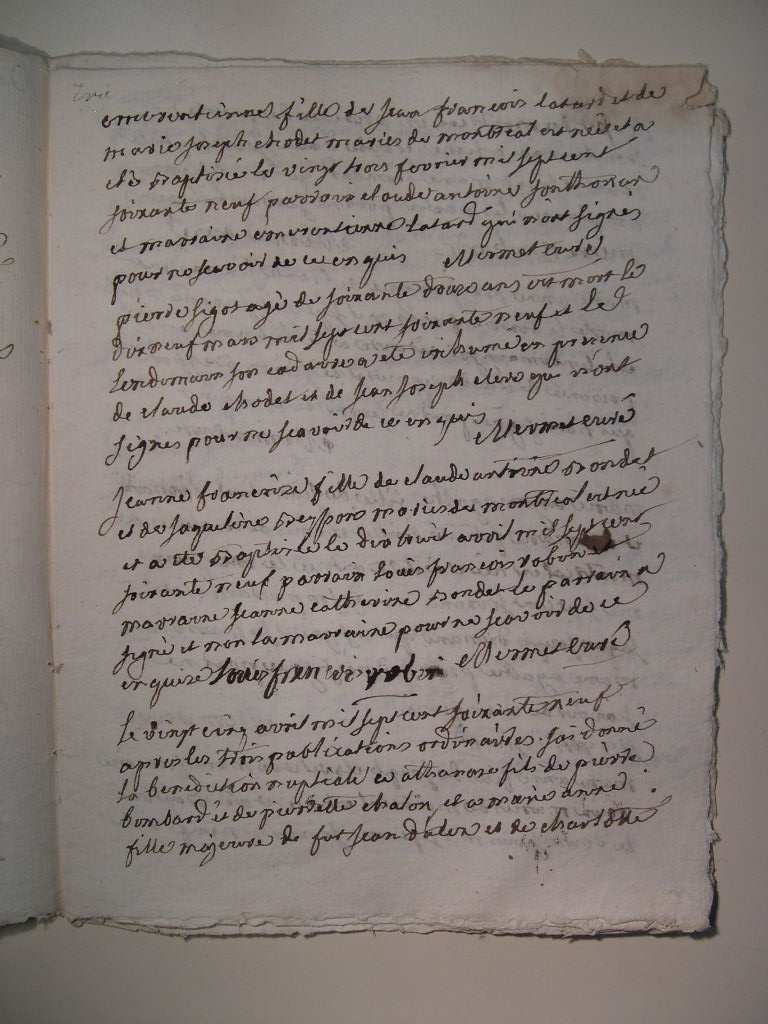 emerentienne fille de jean francois latard et de
marie joseph chodet mariés de montreal est née et a
été baptisée le vingt trois fevrier mil sept cent
soixante neuf parrain claude antoine sonthonax
et marraine emerentienne latard qui n'ont signés
pour ne scavoir de ce enquis Mermet curé
pierre sigot agé de soixante douze ans est mort le
dix neuf mars mil sept cent soixante neuf et le
lendemain son cadavre a eté inhumé en presence
de claude chodet et de jean joseph clerc qui n'ont
signés pour ne scavoir de ce enquis Mermet curé
jeanne francoise fille de claude antoine bondet
et de jaqueline mariés de montreal est née
et a été baptisée le dix huit avril mil sept cent
soixante neuf parrain louis francois robin et
marraine jeanne catherine bondet le parrain a
signé et non la marraine pour ne scavoir de ce
enquise louis francois robin Mermet curé
le vingt cinq avril mil sept cent soixante neuf
apres les trois publications ordinaires j'ai donné
la benediction nuptiale a athanase fils de pierre
bombard et de pierrette chalon, et a marie anne
fille majeure de fut jean dalon et de charlotte